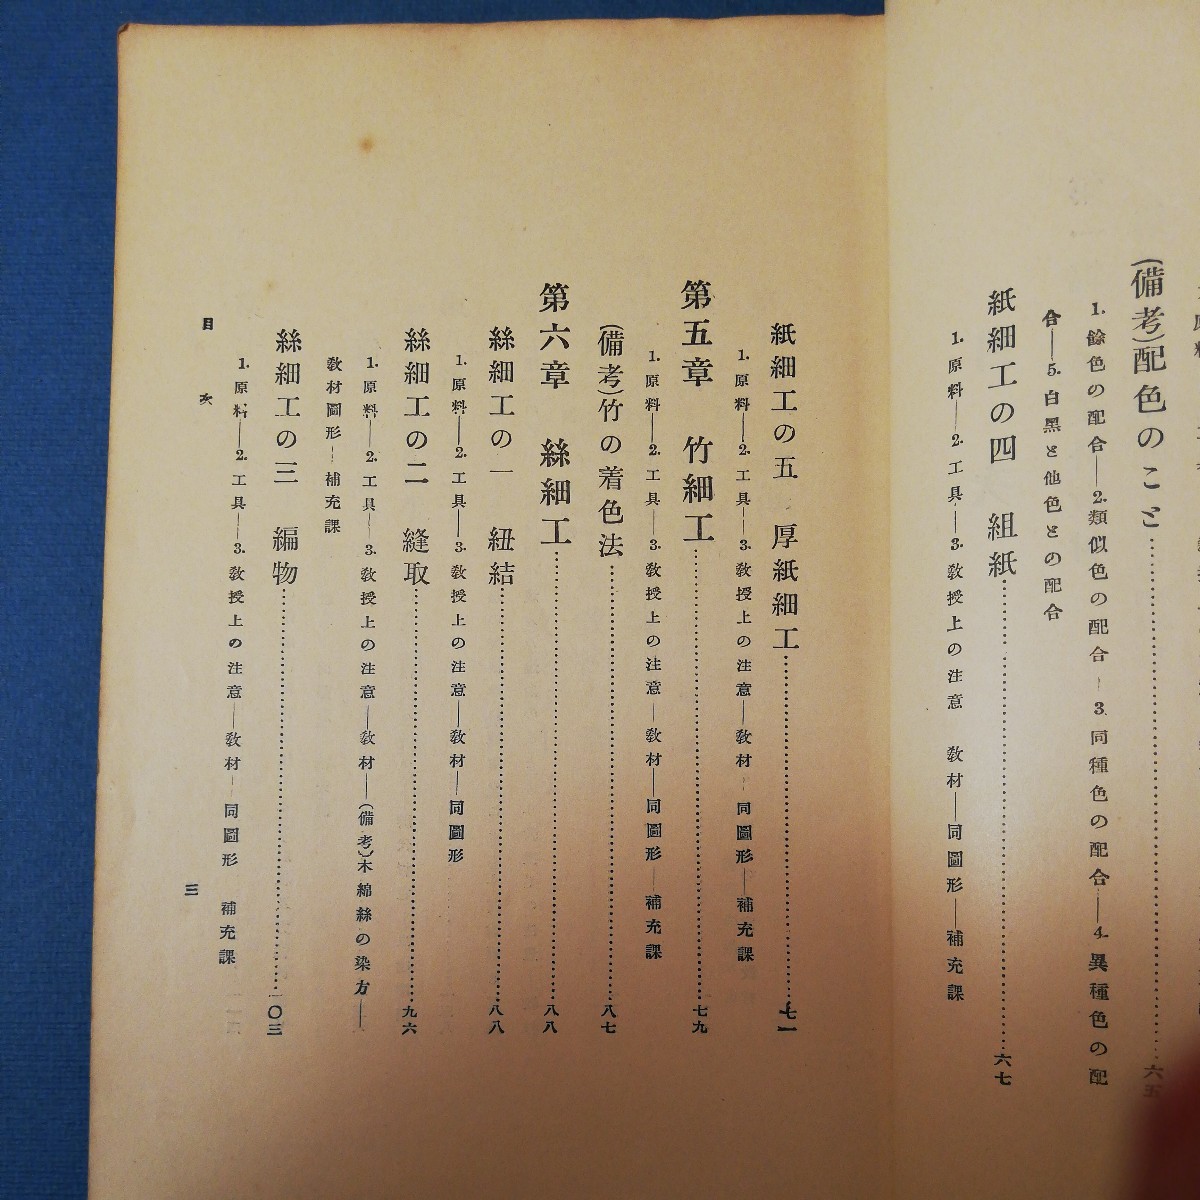 (備考)配色のこと……六五
1. 餘色の配合—2. 類似色の配合—3. 同種色の配合—4. 異種色の配
合—5. 白黑と他色との配合
紙細工の四　組紙……六七
1. 原料—2. 工具—3. 敎授上の注意　敎材—同圖形—補充課
紙細工の五　厚紙細工……七一
1. 原料—2. 工具—3. 敎授上の注意—敎材—同圖形—補充課
第五章　竹細工……七九
1. 原料—2. 工具—3. 敎授上の注意—敎材—同圖形—補充課
(備考)竹の着色法……八七
第六章　絲細工……八八
絲細工の一　紐結……八八
1. 原料—2. 工具—3. 敎授上の注意—敎材—同圖形
絲細工の二　縫取……九六
1. 原料—2. 工具—3. 敎授上の注意—敎材—(備考)木綿絲の染方—
敎材圖形—補充課
絲細工の三　編物……一〇三
1. 原料—2. 工具—3. 敎授上の注意—敎材—同圖形　補充課
目次
三